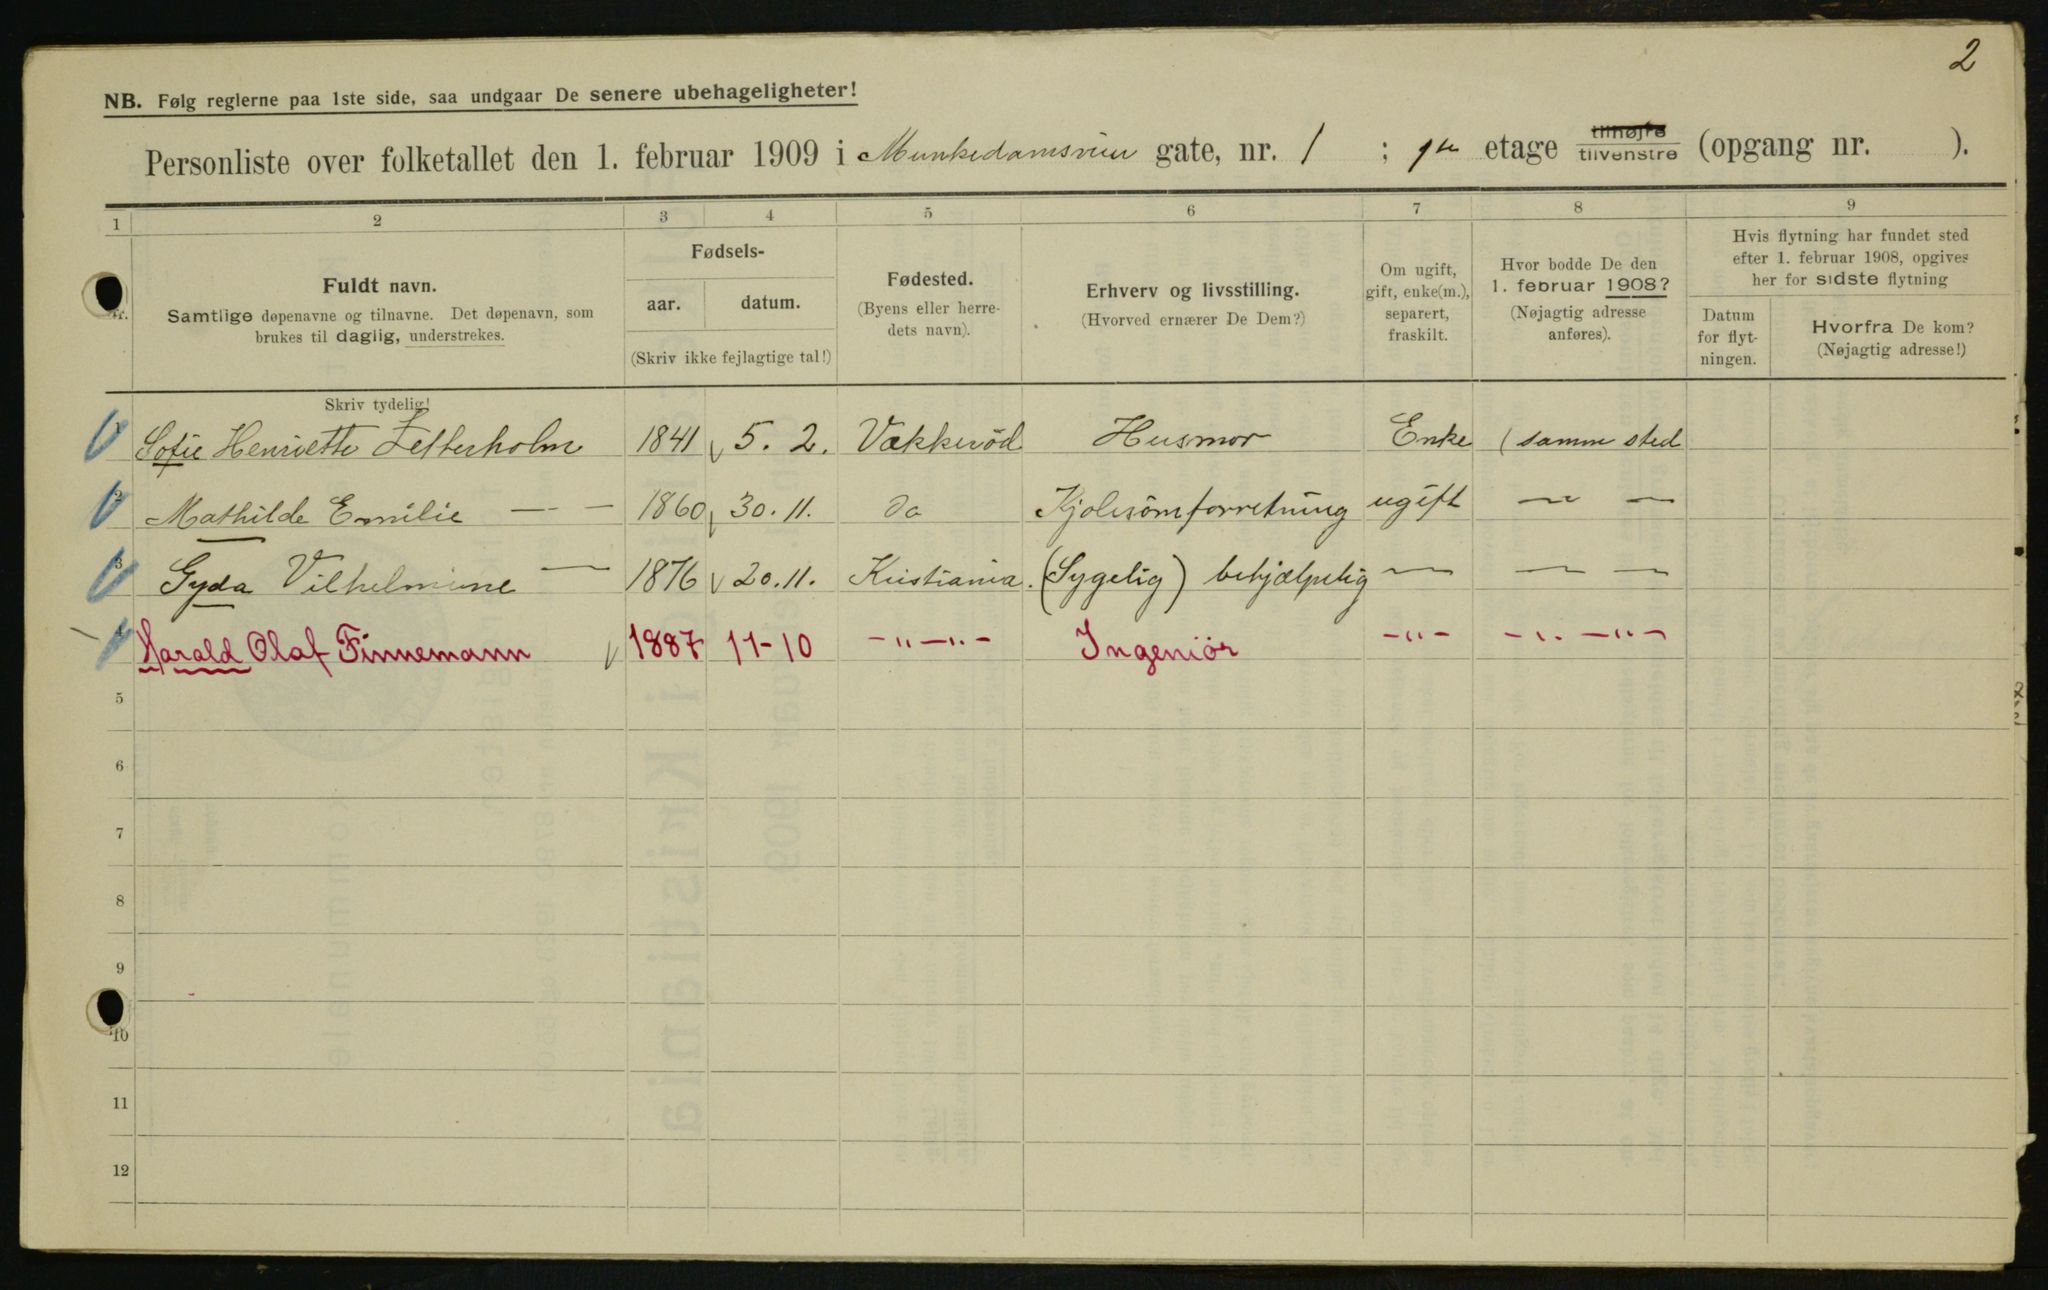 2
NB. Følg reglerne paa 1ste side, saa undgaar De senere ubehageligheter!
Personliste over folketallet den 1. februar 1909 i Munkedamsveien gate, nr. 1 ; 1ste etage tilhøjre tilvenstre (opgang nr. ).
1 2 3 4 5 6 7 8 9
Nr.
Fuldt navn.
Samtlige døpenavne og tilnavne. Det døpenavn, som
brukes til daglig, understrekes.
Skriv tydelig!
Fødsels-
aar. datum.
(Skriv ikke fejlagtige tal!)
Fødested.
(Byens eller herre-
dets navn).
Erhverv og livsstilling.
(Hvorved ernærer De Dem?)
Om ugift,
gift, enke(m.),
separert,
fraskilt.
Hvor bodde De den
1. februar 1908?
(Nøjagtig adresse
anføres).
Hvis flytning har fundet sted
efter 1. februar 1908, opgives
her for sidste flytning
Datum
for flyt-
ningen.
Hvorfra De kom?
(Nøjagtig adresse!)
1 Sofie Henriette Zetterholm 1841 5. 2. Vækkerød Husmor Enke samme sted
2 Mathilde Emilie — - — 1860 30. 11. do Kjolesömforretning ugift — —
3 Gyda Vilhelmine — 1876 20. 11. Kristiania. (Sygelig) behjælpelig — — —
4 Harald Olaf Finnemann 1887 11-10 -"-"- Ingeniör -"- -"-"-
5
6
7
8
9
10
11
12